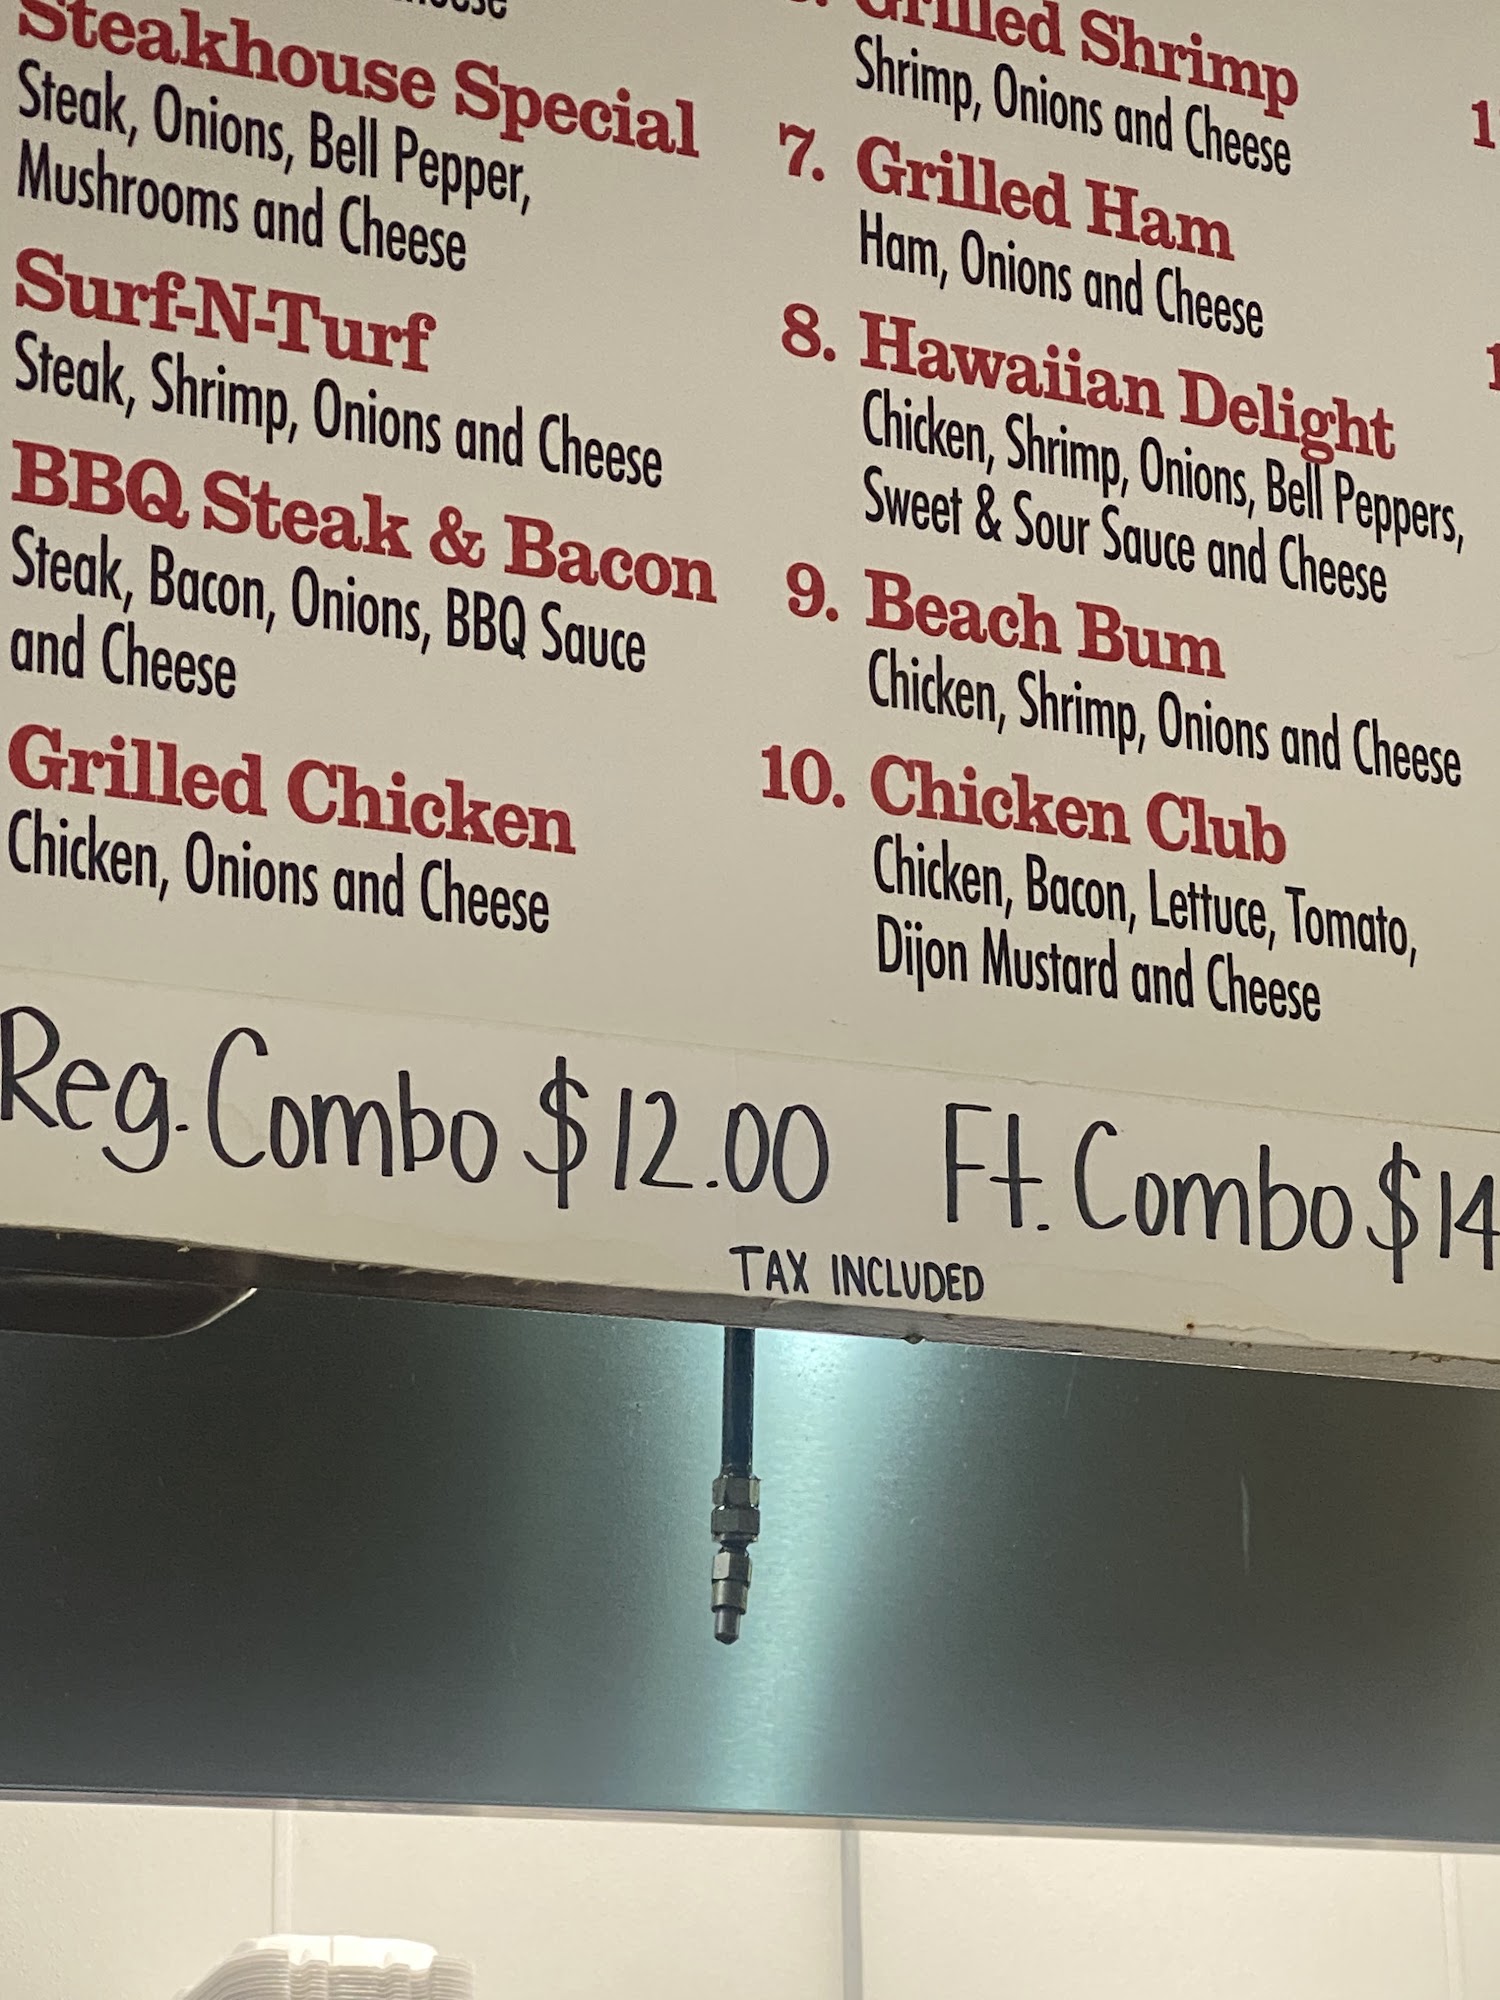 Steakhouse Special
Steak, Onions, Bell Pepper,
Mushrooms and Cheese
Surf-N-Turf
Steak, Shrimp, Onions and Cheese
BBQ Steak & Bacon
Steak, Bacon, Onions, BBQ Sauce
and Cheese
Grilled Chicken
Chicken, Onions and Cheese
Grilled Shrimp
Shrimp, Onions and Cheese
7. Grilled Ham
Ham, Onions and Cheese
8. Hawaiian Delight
Chicken, Shrimp, Onions, Bell Peppers,
Sweet & Sour Sauce and Cheese
9. Beach Bum
Chicken, Shrimp, Onions and Cheese
10. Chicken Club
Chicken, Bacon, Lettuce, Tomato,
Dijon Mustard and Cheese
Reg. Combo $12.00 Ft. Combo $14
TAX INCLUDED